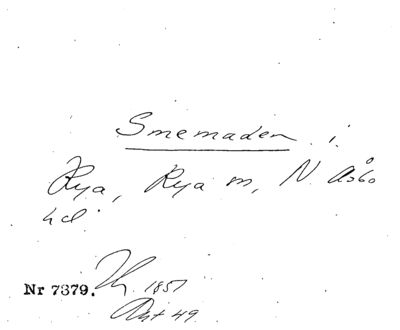 Smemaden i
Rya, Rya sn, N Åsbo
hd.
Nr 7379. 1857
Akt 49